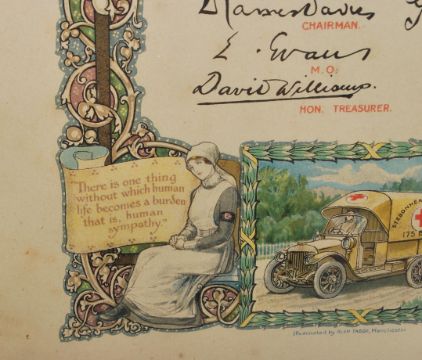 CHAIRMAN.
E. Evans
M.O.
David Williams.
HON. TREASURER.
"There is one thing
without which human
life becomes a burden
that is, human
sympathy."
175
Illuminated by ALAN TABOR, Manchester